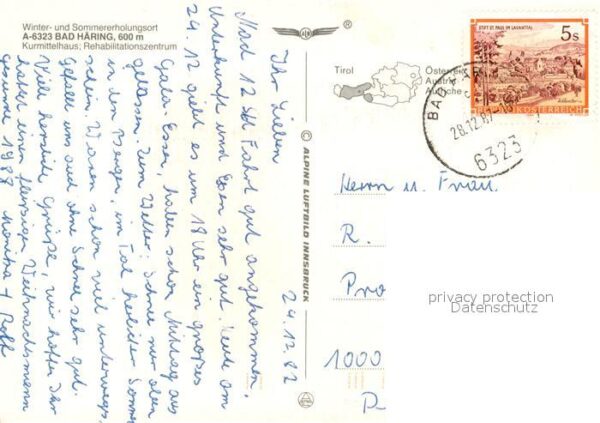 Winter- und Sommererholungsort
A-6323 BAD HÄRING, 600 m
Kurmittelhaus; Rehabilitationszentrum
®
© ALPINE LUFTBILD INNSBRUCK
Tirol
Österreich
Austria
Autriche
STIFT ST. PAUL IM LAVANTTAL
5s
REPUBLIK ÖSTERREICH
BAD
28.12.87
6323
24.12.87
Ihr Lieben
Nach 12 Std Fahrt gut angekommen,
Unterkunft und Essen sehr gut. Heute am
24.12 giebt es um 18 Uhr ein großes
Gala-Essen, haben schon Mittag aus
gelassen. Zum Wetter: Schnee nur oben
in den Bergen, im Tal herrlicher Sonnen
schein. Waren schon viel unterwegs,
Gefällt uns auch ohne Schnee sehr gut.
Viele herzliche Grüße, wir hoffen Ihr
hattet einen fleißigen Weihnachtsmann
1988 Monika +
Herrn u. Frau
R.
Pro
1000
privacy protection
Datenschutz